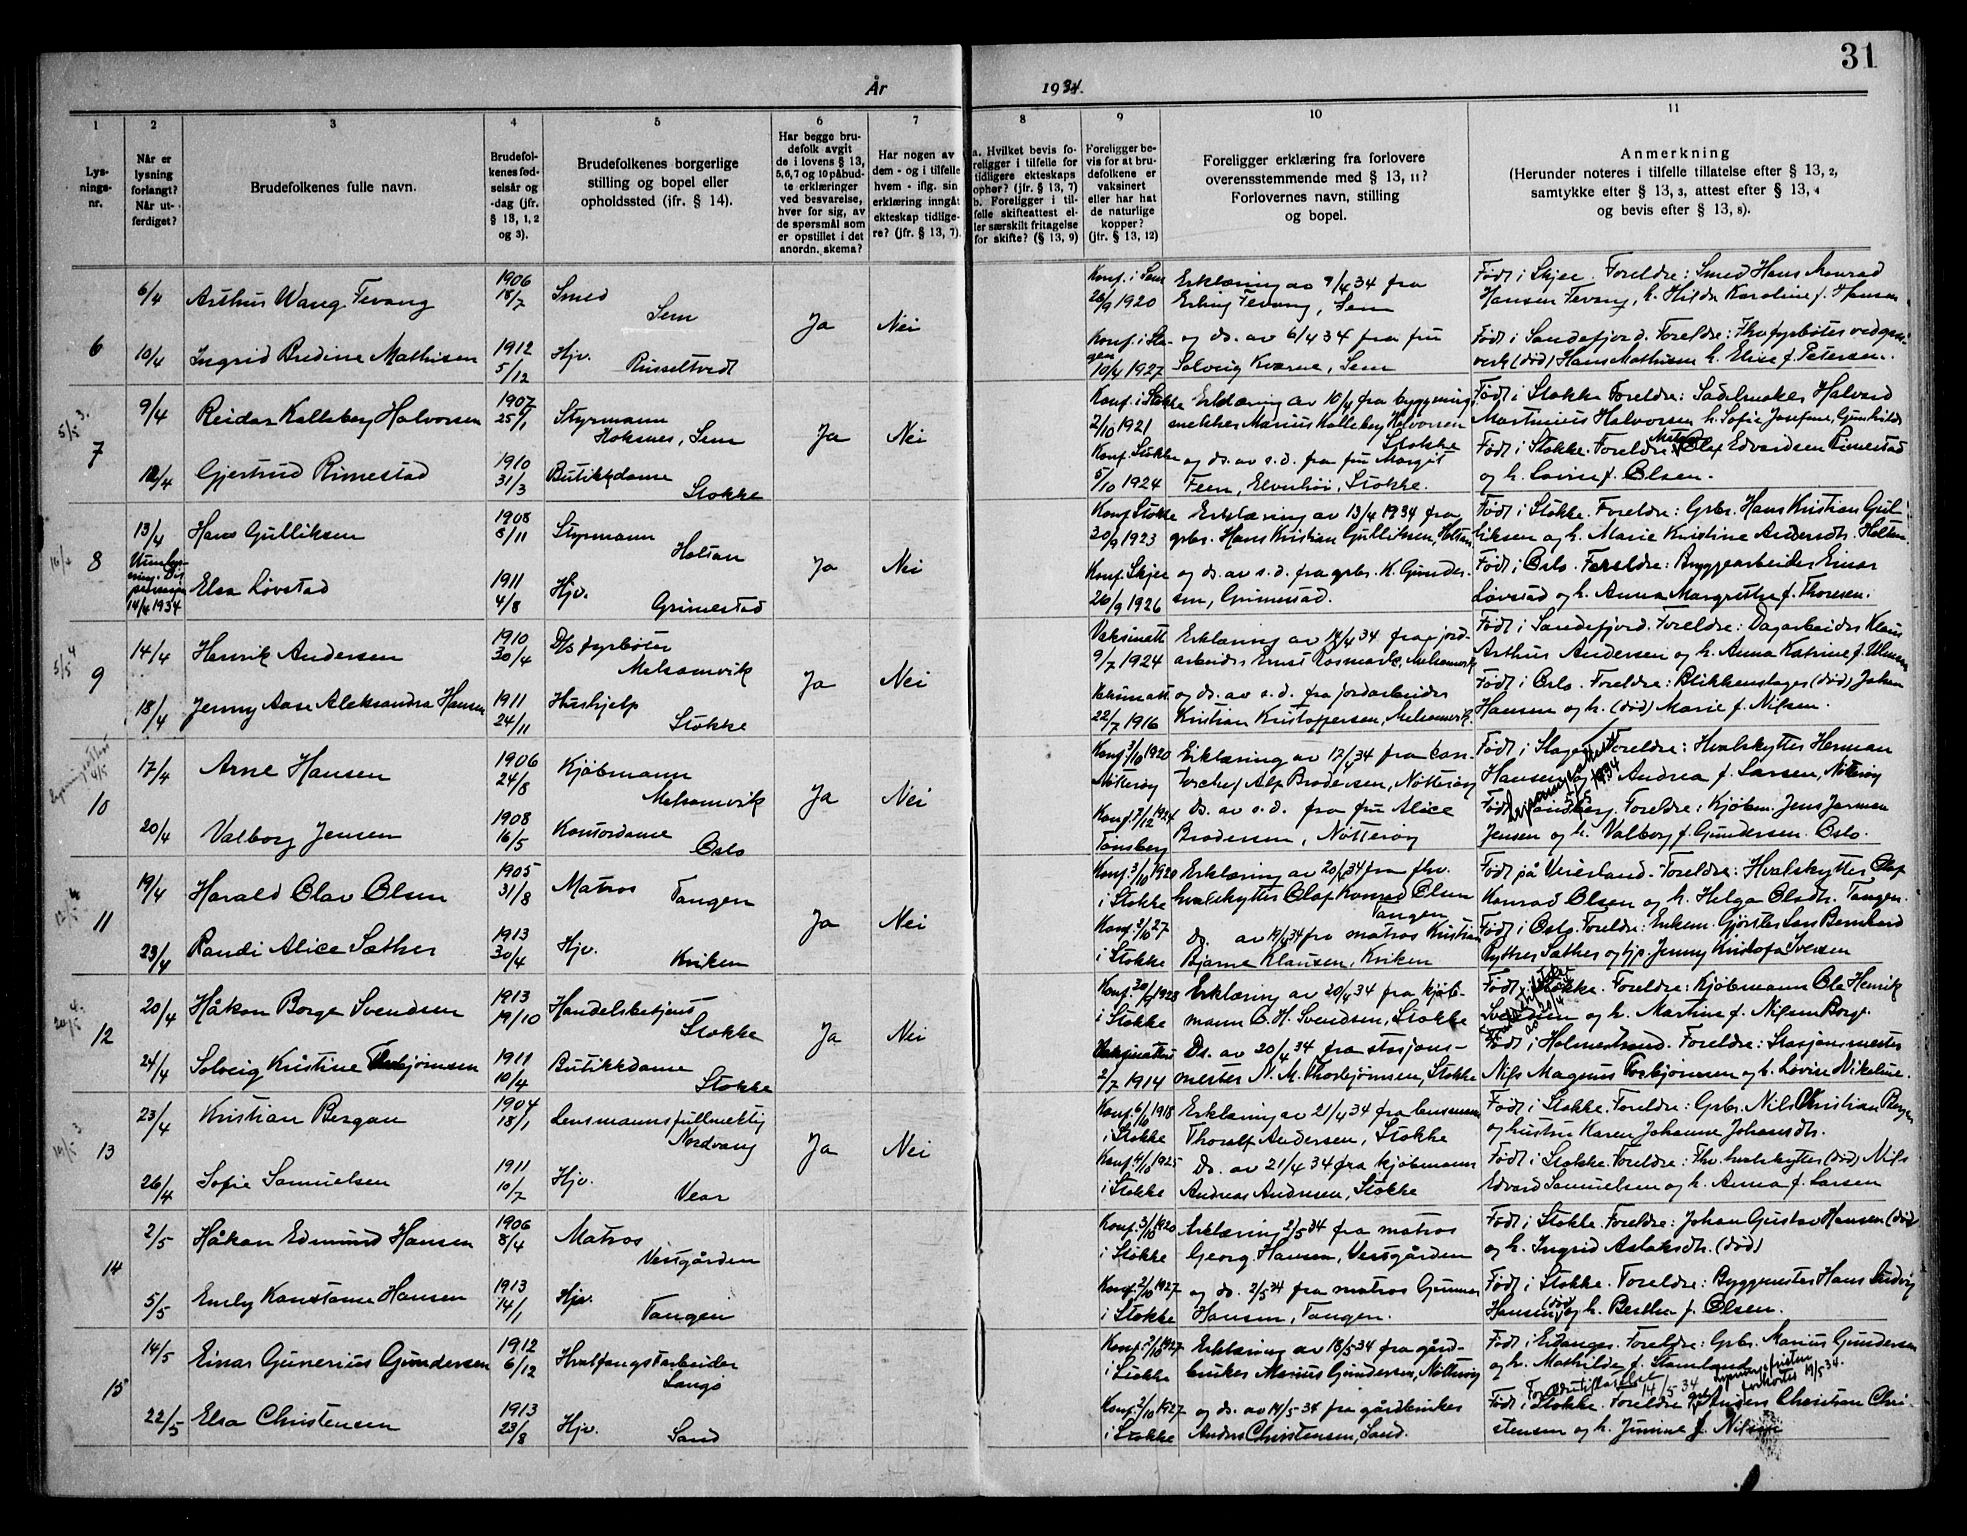 31
År 1934.
1 2 3 4 5 6 7 8 9 10 11
Lys-
nings-
nr.
Når er
lysning
forlangt?
Når ut-
ferdiget?
Brudefolkenes fulle navn.
Brudefol-
kenes fød-
selsår og
-dag (jfr.
§ 13, 1, 2
og 3).
Brudefolkenes borgerlige
stilling og bopel eller
opholdssted (jfr. § 14).
Har begge bru-
defolk avgit
de i lovens § 13,
5, 6, 7 og 10 påbud-
te erklæringer
ved besvarelse,
hver for sig, av
de spørsmål som
er opstillet i det
anordn. skema?
Har nogen av
dem - og i tilfelle
hvem - iflg. sin
erklæring inngåt
ekteskap tidlige-
re? (jfr. § 13, 7).
a. Hvilket bevis fo-
religger i tilfelle for
tidligere ekteskaps
ophør? (jfr. § 13, 7)
b. Foreligger i til-
felle skifteattest el-
ler særskilt fritagelse
for skifte? (§ 13, 9)
Foreligger be-
vis for at bru-
defolkene er
vaksinert
eller har hat
de naturlige
kopper?
(jfr. § 13, 12)
Foreligger erklæring fra forlovere
overensstemmende med § 13, 11?
Forlovernes navn, stilling
og bopel.
Anmerkning
(Herunder noteres i tilfelle tillatelse efter § 13, 2,
samtykke efter § 13, 3, attest efter § 13, 4
og bevis efter § 13, 8).
6
6/4 Arthur Wang Tevang 1906 18/7 Smed Sem Ja Nei
Konf. i Sem Erklæring av 9/4 34 fra Født i Skjee. Foreldre: Smed Hans Konrad
26/9 1920 Erling Tevang, Sem Hansen Tevang, h. Hilda Karoline f. Hansen
10/4 Ingrid Bredine Mathisen 1912 5/12 Hjv. Russeltvedt
og ds. av 6/4 34 fra fru Født i Sandefjord. Foreldre: Fhv. fyrbøter ved gass-
10/4 1927 Solveig Kverne, Sem verk (død) Hans Mathisen h. Elise f. Petersen.
5/5 3.
7
9/4 Reidar Kalleberg Halvorsen 1907 25/1 Styrmann Hoksnes, Sem Ja Nei
Konf. i Stokke Erklæring av 10/4 fra bygnings- Født i Stokke Foreldre: Sadelmaker Halvard
2/10 1921 snekker Marius Kalleberg Halvorsen Martinius Halvorsen h. Sofie Josefine Gunhilds
Stokke
Gjertrud Rimestad 1910 31/3 Butikkdame Stokke
Konf. Stokke og ds. av s. d. fra fru Margit Født i Stokke. Foreldre: Olaf Edvardsen Rimestad
5/10 1924 Feen, Elverhöi, Stokke. og h. Lovise f. Olsen.
16/4
8
13/4 Hans Gulliksen 1908 8/11 Styrmann Holtan Ja Nei
Konf. Stokke Erklæring av 13/4 1934 fra Født i Stokke. Foreldre: Grbr. Hans Kristian Gul-
30/9 1923 grbr. Hans Kristian Gulliksen, Holtan liksen og h. Marie Kristine Andersdtr. Holtan.
14/4 1934 Elsa Løvstad 1911 4/8 Hjv. Grimestad
Konf. Skjee og ds. av s. d. fra grbr. K. Gunder- Født i Oslo. Foreldre: Byggearbeider Einar
26/9 1926 sen, Grimestad. Løvstad og h. Anna Margrethe f. Thoresen.
5/5 4
9
14/4 Henrik Andersen 1910 30/4 D/s fyrbøter Melsomvik Ja Nei
Vaksinatt. Erklæring av 14/4 34 fra jord- Født i Sandefjord. Foreldre: Dagarbeider Klaus
9/7 1924 arbeider Ernst Rosmark, Melsomvik Arthur Andersen og h. Anna Katrine f. Ulman
18/4 Jenny Aase Aleksandra Hansen 1911 24/11 Hushjelp Stokke
Vaksinatt. og ds. av s. d. fra jordarbeider Født i Oslo. Foreldre: Blikkenslager (død) Johan
22/7 1916 Kristian Kristoffersen, Melsomvik. Hansen og h. (død) Marie f. Nilsen.
10
17/4 Arne Hansen 1906 24/8 Kjøbmann Melsomvik Ja Nei
Konf. 3/10 1920 Erklæring av 17/4 34 fra Født i Slagen Foreldre: Hvalskytter Herman
Nøtterøy Alf Brodersen, Nøtterøy Hansen og Andrea f. Larsen, Nøtterøy
20/4 Valborg Jensen 1908 16/5 Kontordame Oslo
Konf. 7/12 1924 Ds. av s. d. fra fru Alice Født Foreldre: Kjøbm. Jens Jarmen
Tønsberg Brodersen, Nøtterøy Jensen og h. Valborg f. Gundersen. Oslo.
11
19/4 Harald Olav Olsen 1905 31/8 Matros Tangen Ja Nei
Konf. 3/10 1920 Erklæring av 20/4 34 fra fhv. Født på Veierland. Foreldre: Hvalskytter Olaf
i Stokke hvalskytter Olaf Konrad Olsen Konrad Olsen og h. Helga Olsdtr. Tangen.
Tangen
23/4 Randi Alice Sæther 1913 30/4 Hjv. Kviken
Konf. 3/10 27 ds. av 19/4 34 fra matros Kristian Født i Oslo. Foreldre: Enkem. Gjørtler Lars Bernhard
i Stokke Bjarne Klausen, Kviken Rytter Sæther og tjp. Jenny Kristofa Iversen
12
20/4 Håkon Borge Svendsen 1913 19/10 Handelsbetjent Stokke Ja Nei
Konf. 30/9 1928 Erklæring av 20/4 34 fra kjøb- Født i Stokke. Foreldre: Kjøbmann Ole Henrik
i Stokke mann O. H. Svendsen, Stokke Svendsen og h. Martine f. Nilsen Borge.
24/4 Solveig Kristine Thorbjørnsen 1911 10/4 Butikkdame Stokke
Vaksinatt. Ds. av 20/4 34 fra stasjons- Født i Holmestrand. Foreldre: Stasjonsmester
2/7 1914 mester N. M. Thorbjørnsen, Stokke Nils Magnus Torbjørnsen og h. Lovise Nikoline.
14/5 3
13
23/4 Kristian Bergan 1904 18/1 Lensmannsfullmektig Nordvang Ja Nei
Konf. 6/10 1918 Erklæring av 21/4 34 fra lensmann Født i Stokke. Foreldre: Grbr. Nils Christian Bergan
i Stokke Thoralf Andersen, Stokke og hustru Karen Johanne Johansdtr.
26/4 Sofie Samuelsen 1911 10/7 Hjv. Vear
Konf. 4/10 1925 Ds. av 21/4 34 fra kjøbmann Født i Stokke. Foreldre: Fhv. hvalskytter (død) Nils
i Stokke Andreas Andresen, Stokke Edvard Samuelsen og h. Anna f. Larsen
14
2/5 Håkon Edmund Hansen 1906 8/4 Matros Vestgården
Konf. 3/10 1920 Erklæring 2/5 34 fra matros Født i Stokke. Foreldre: Johan Gustav Hansen (død)
i Stokke Georg Hansen, Vestgården og h. Ingrid Aslaksdtr. (død)
5/5 Emly Konstanse Hansen 1913 14/1 Hjv. Tangen
Konf. 2/10 1927 og ds. 2/5 34 fra matros Gunnar Født i Stokke. Foreldre: Byggmester Hans Ludvig
i Stokke Hansen, Tangen. Hansen (død) og h. Berthe f. Olsen.
15
14/5 Einar Gunerius Gundersen 1912 6/12 Hvalfangstarbeider Langø
Konf. 2/10 1927 Erklæring av 18/5 34 fra gård- Født i Eidanger. Foreldre: Grbr. Marius Gundersen
i Stokke bruker Marius Gundersen, Nøtterøy og h. Mathilde f. Stamland
14/5 34 14/5 34.
22/5 Elsa Christensen 1913 23/8 Hjv. Sand
Konf. 2/10 1927 og ds. av 14/5 34 fra gårdbruker Født i Stokke. Foreldre grbr. Anders Christian Chri-
i Stokke Anders Christensen, Sand. stensen og h. Jumine f. Nilsen